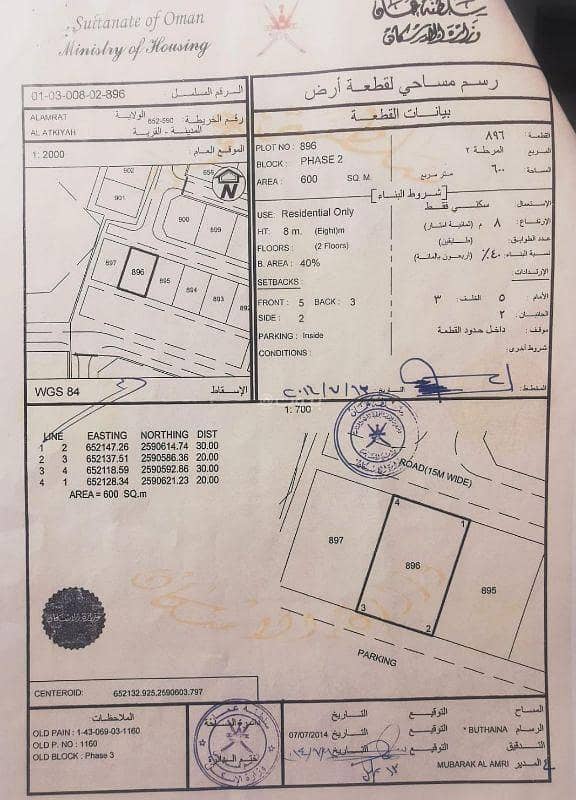 Sultanate of Oman
Ministry of Housing
سلطنة عمان
وزارة الإسكان
01-03-008-02-896 الرقم المسلسل :
ALAMRAT الولاية
AL ATKIYAH المدينة - القرية
652-590 رقم الخريطة :
1: 2000 الموقع العام :
902
901
656
N
900
899
897
896
895
894
893
892
WGS 84 الإسقاط
رسم مساحي لقطعة أرض
بيانات القطعة
PLOT NO : 896 القطعة ٨٩٦
BLOCK : PHASE 2 المربع المرحلة ٢
AREA : 600 SQ. M. المساحة ٦٠٠ متر مربع
شروط البناء
USE: Residential Only الاستعمال سكني فقط
HT: 8 m. (Eight)m الارتفاع: ٨ م (ثمانية أمتار)
FLOORS : (2 Floors) عدد الطوابق: (طابقين)
B. AREA : 40% نسبة البناء: ٤٠٪ (أربعون بالمائة)
SETBACKS الإرتدادات
FRONT : 5 BACK : 3 الأمام ٥ الخلف: ٣
SIDE : 2 الجانبان: ٢
PARKING : Inside موقف: داخل حدود القطعة
CONDITIONS : شروط أخرى:
المخطط: التاريخ
1: 700
LINE EASTING NORTHING DIST
1 2 652147.26 2590614.74 30.00
2 3 652137.51 2590586.36 20.00
3 4 652118.59 2590592.86 30.00
4 1 652128.34 2590621.23 20.00
AREA = 600 SQ.m
ROAD(15M WIDE)
4
1
897
896
895
3
2
PARKING
CENTEROID: 652132.925,2590603.797
الملاحظات
OLD PAIN : 1-43-069-03-1160
OLD P. NO : 1160
OLD BLOCK : Phase 3
المساح التوقيع التاريخ
الرسام BUTHAINA * التوقيع التاريخ 07/07/2014
التدقيق التوقيع التاريخ
المدير MUBARAK AL AMRI